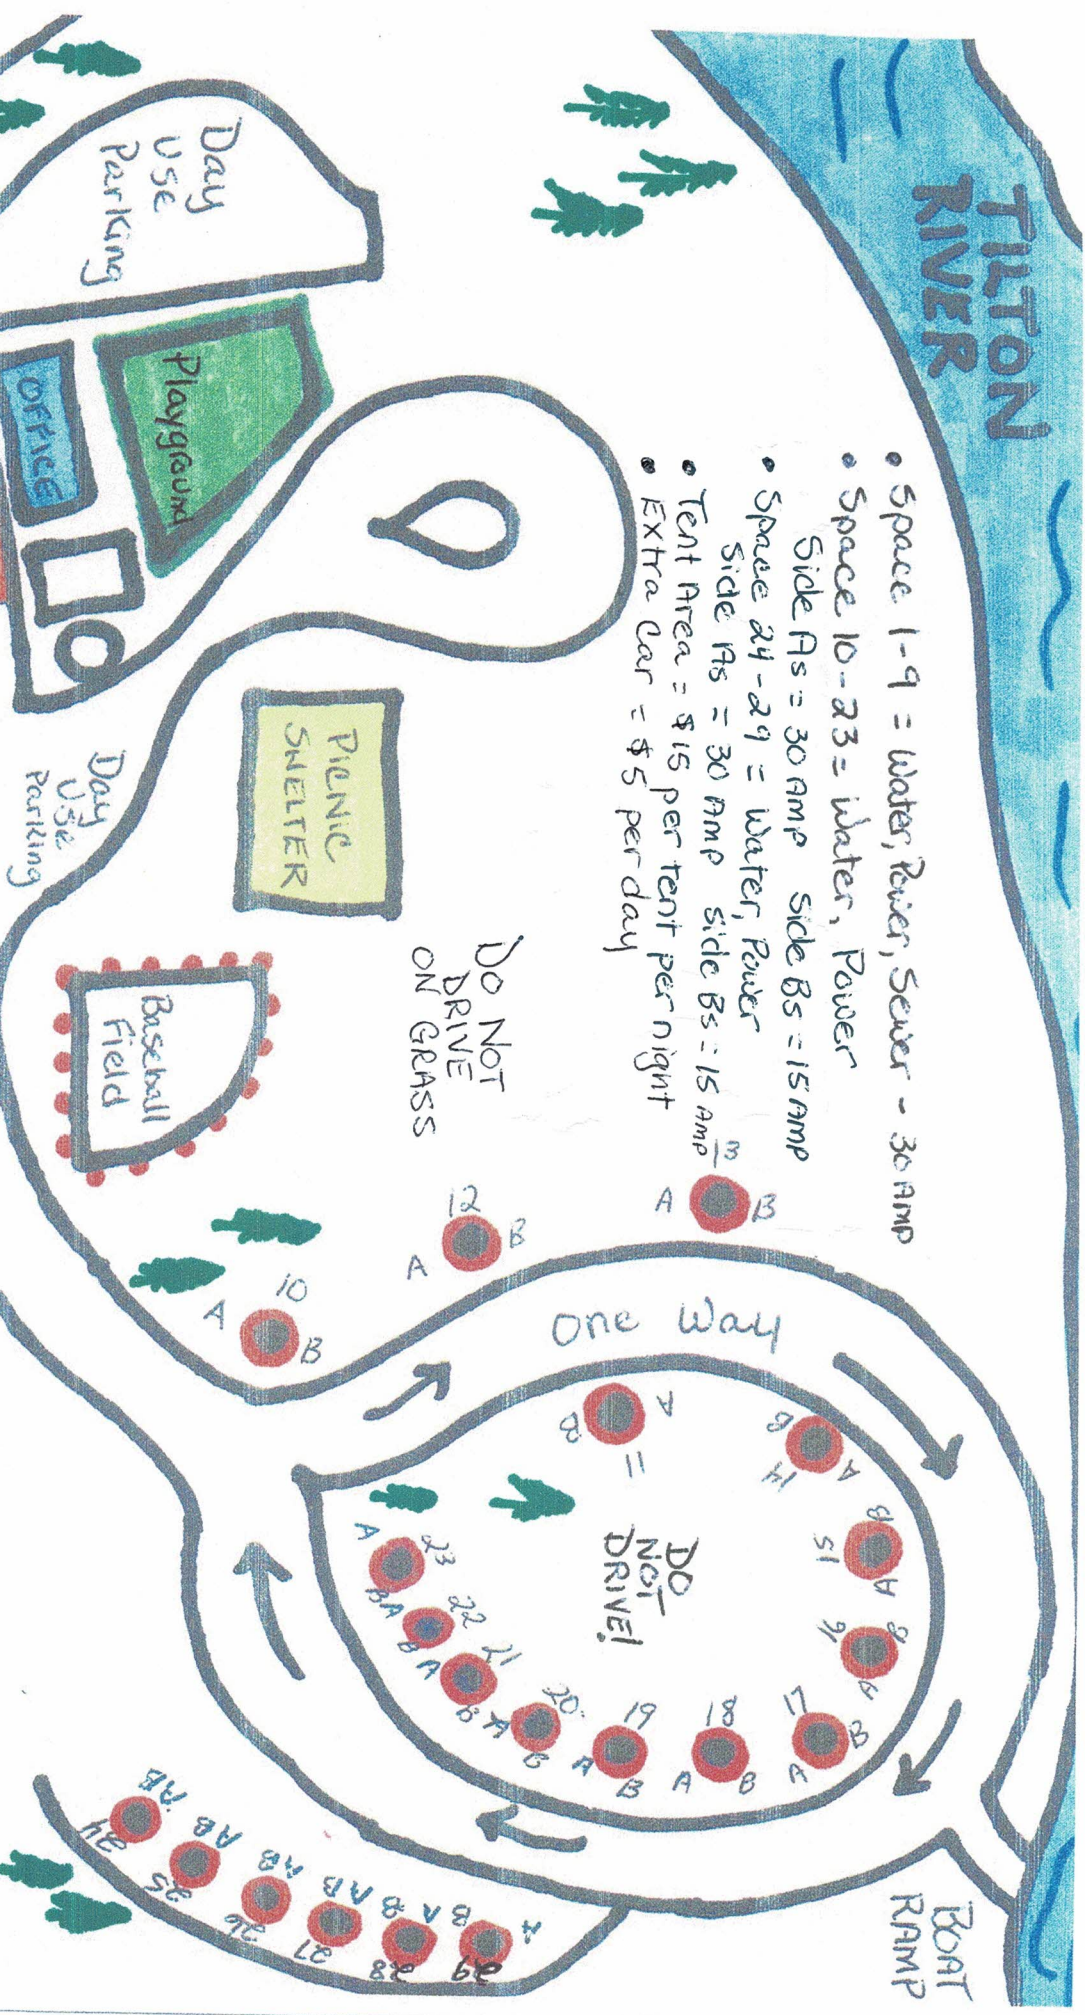 TILTON
RIVER
• Space 1-9 = Water, Power, Sewer - 30 AMP
• Space 10-23 = Water, Power
Side As = 30 AMP Side Bs = 15 AMP
• Space 24-29 = Water, Power
Side As = 30 AMP Side Bs = 15 AMP
• Tent Area = $15 per tent per night
• Extra Car = $5 per day
Day
Use
Parking
Playground
OFFICE
PICNIC
SHELTER
Day
Use
Parking
DO NOT
DRIVE
ON GRASS
Baseball
Field
13
A B
12
A B
10
A B
One Way
A
B
11
B A
14
B A
15
B A
16
17
A B
18
A B
19
A B
20
A B
21
A B
22
A B
23
A B
DO
NOT
DRIVE!
BOAT
RAMP
AB
24
AB
25
AB
26
AB
27
AB
28
AB
29